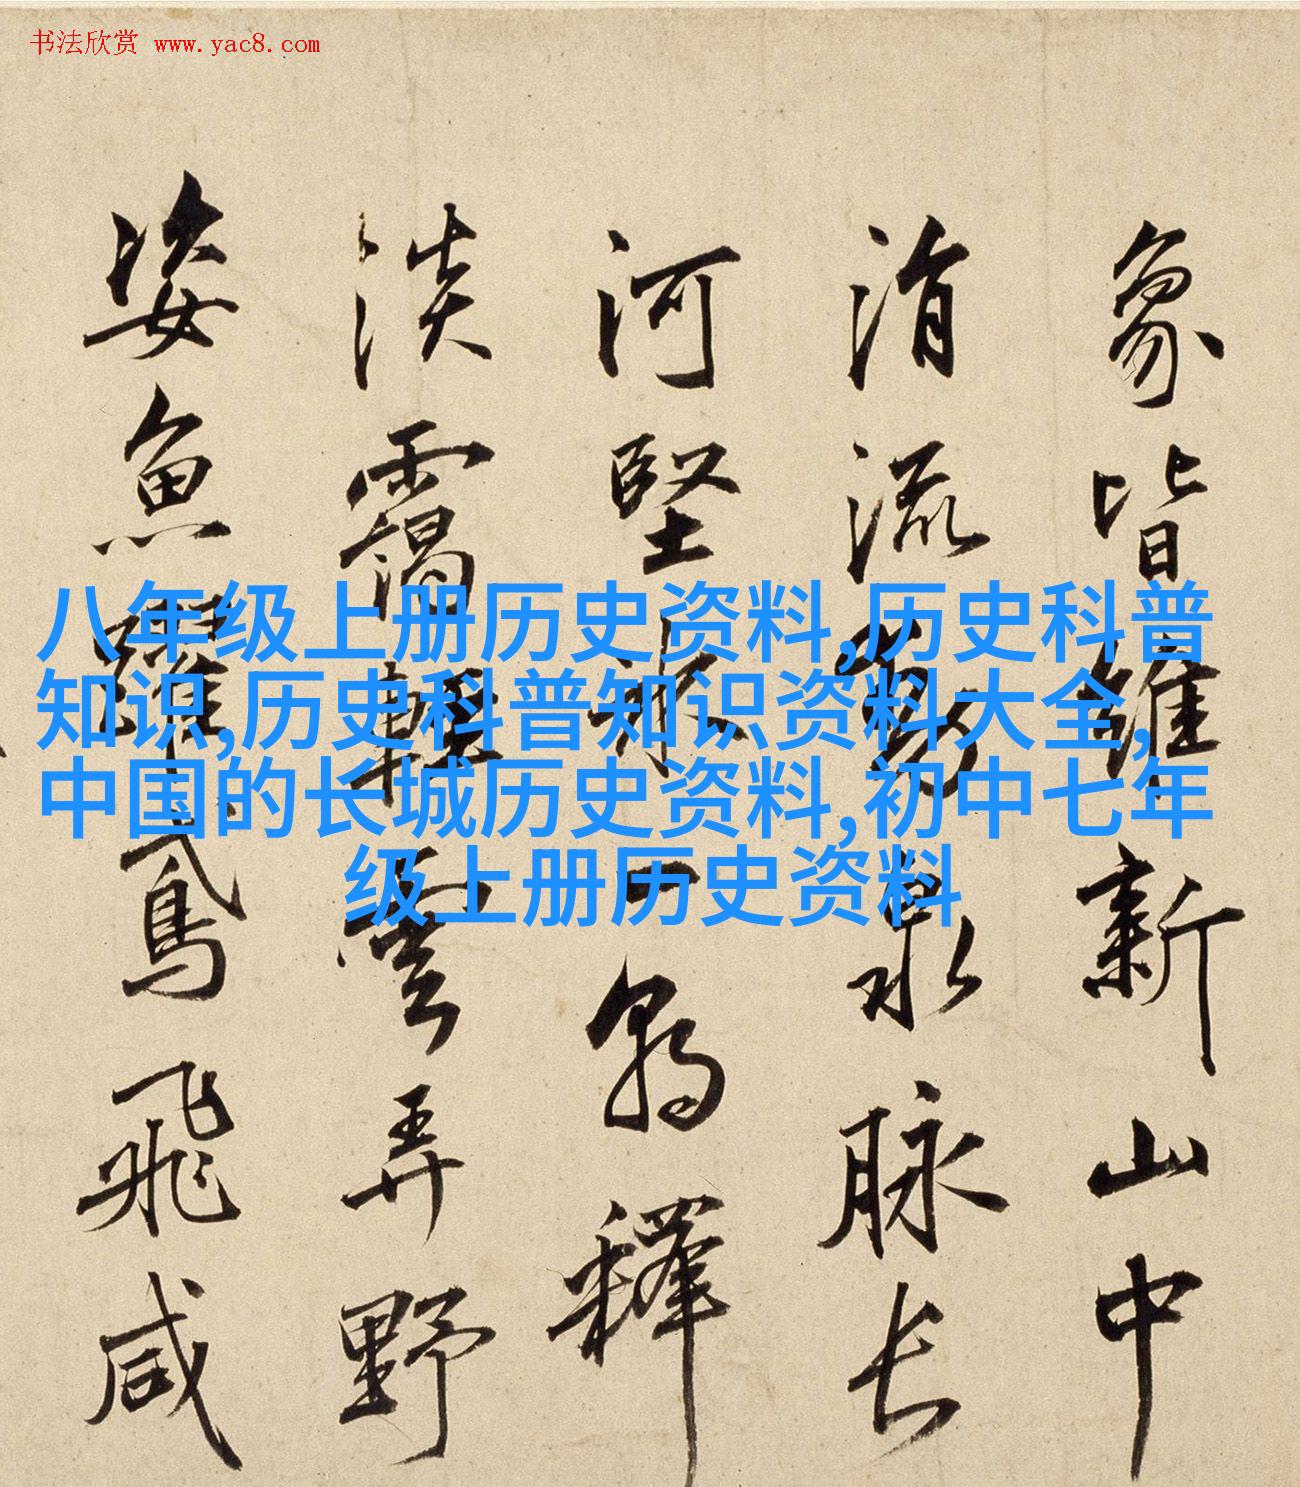 书法欣赏 www.yac8.com
象皆雄新山中
消流觉泉脉长
河坚冰一朝释
淡霭轻云弄野
姿鱼跃鸢飞咸
八年级上册历史资料,历史科普
知识,历史科普知识资料大全,
中国的长城历史资料,初中七年
级上册历史资料